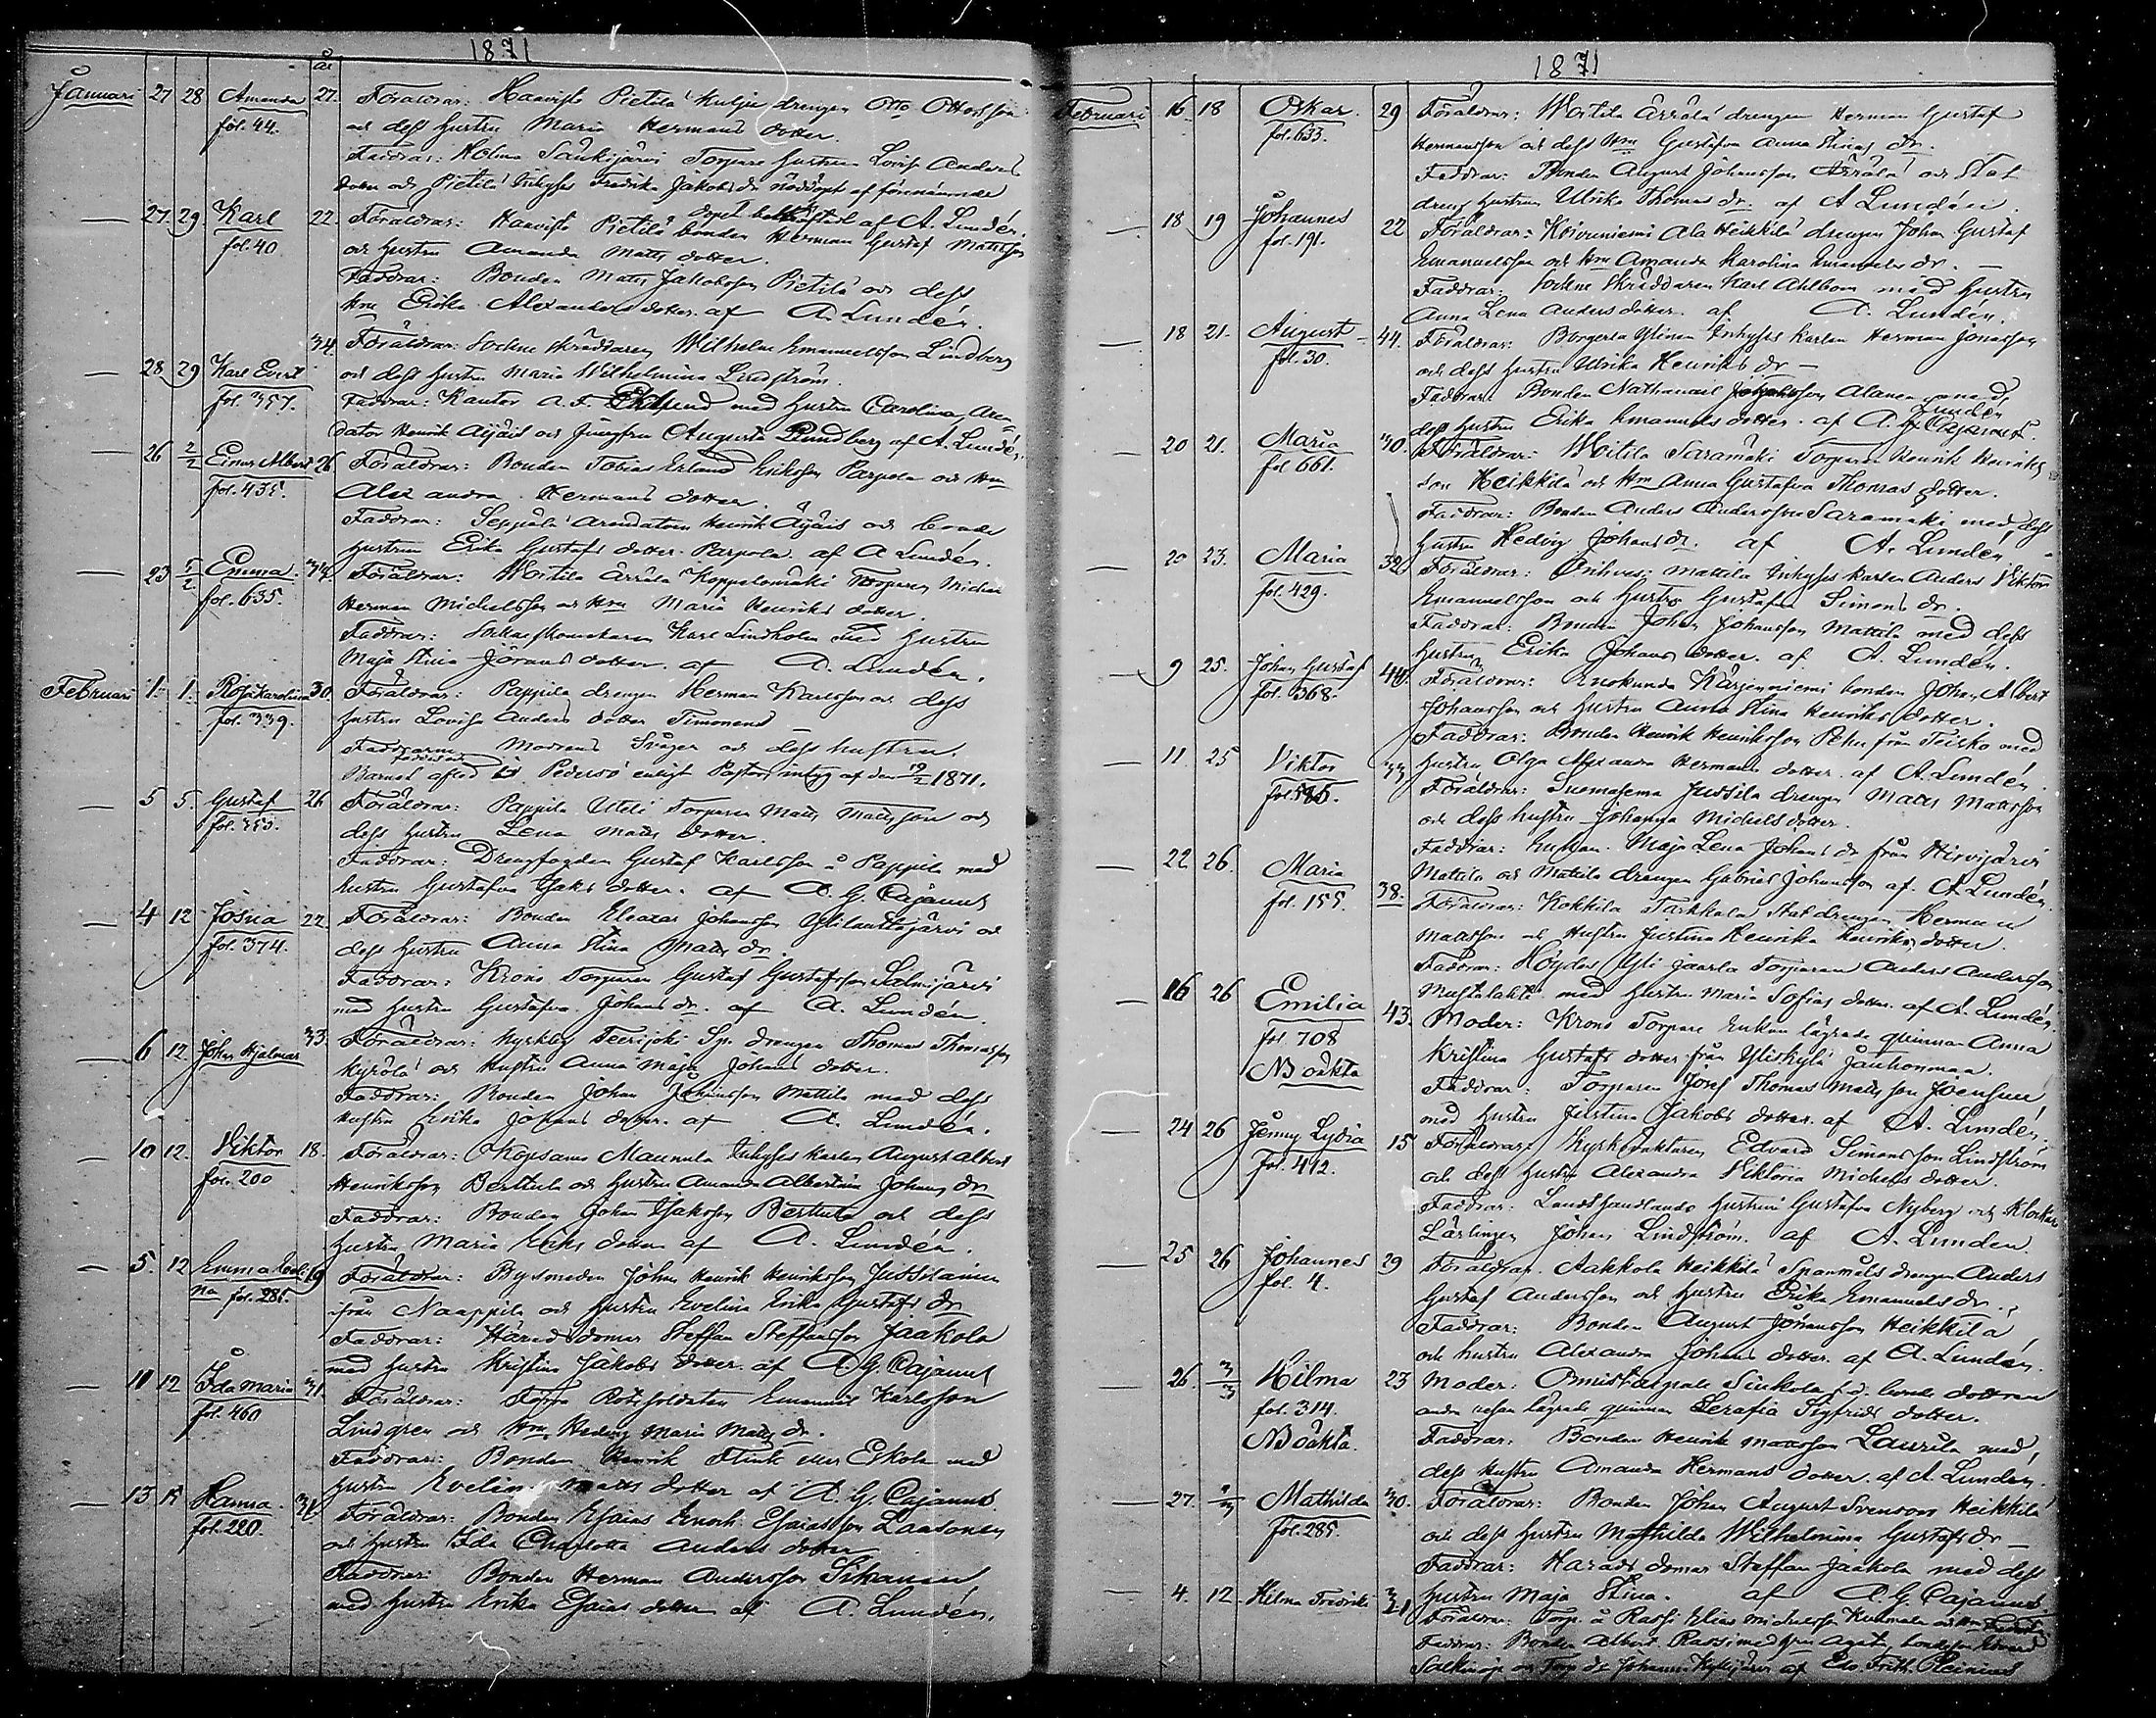 1871
år
Januari 27 28 Amanda 27. Föräldrar: Haavisto Pietilä Kulju drengen Otto Ottosson
fol. 44. och dess hustru Maria Hermans dotter.
Faddrar: Holma Torpare hustrun Lovisa Anders
dotter och Pietilä Inhyses Fredrika Jakobs dr nöddöpt af förenämnde
dopet af A. Lundén.
— 27 29 Karl 22. Föräldrar: Haavisto Pietilä bonden Herman Gustaf Mattsson
fol. 40 och hustru Amanda Matts dotter.
Faddrar: Bonden Matts Jakobsson Pietilä och dess
Hru Erika Alexanders dotter. af A. Lundén.
— 28 29 Karl Evert 34 Föräldrar: Sockne skräddaren Wilhelm Emanuelsson Lindberg
fol. 357. och dess hustru Maria Wilhelmina Lindström.
Faddrar: Kantor A. F. med hustru Carolina, Aren-
dator Henrik Äijäis och Jungfrun Augusta Lundberg af A. Lundén.
— 26 2/2 Albert 26 Föräldrar: Bonden Tobias Erland Eriksson Parpola och Hru
fol. 435. Alexandra Hermans dotter.
Faddrar: Seppälä Arendatorn Henrik Äijäis och bonde
hustrun Erika Gustafs dotter Parpola af A Lundén.
— 23 5/2 Emma 34 Föräldrar: Woitila Ärrälä Koppelomäki Torparen Michel
fol. 635. Herman Michelsson och Hru Maria Henriks dotter.
Faddrar: Sockneskomakaren Karl Lindholm med hustru
Maja Stina Jörans dotter. af A. Lundén.
Februari 1. 1. Rosa Karolina 30. Föräldrar: Pappila drengen Herman Karlsson och dess
fol. 339. hustru Lovisa Anders dotter Timonens
Faddrarne Modrens Svåger och dess hustru.
Barnet i Pedersö enligt Pastors intyg af den 19/2 1871.
— 5 5. Gustaf 26 Föräldrar: Pappila Uteli Torparen Matts Mattsson och
fol. 353. dess hustru Lena Matts dotter
Faddrar: Drengfogden Gustaf Karlsson å Pappila med
hustru Gustafva Isaks dotter. af A. G. Cajanus
— 4 12 Josua 22. Föräldrar: Bonden Eleazar Johansson och
fol. 374. dess hustru Anna Stina Matts dr.
Faddrar: Krono Torparen Gustaf Gustafsson Salmijärvi
med hustru Gustafva Johans dr. af A. Lundén.
— 6 12 Johan Hjalmar 33. Föräldrar: Kyrkby Teerijoki Sp. drengen Thomas Thomasson
Kyrölä och hustru Anna Maja Johans dotter.
Faddrar: Bonden Johan Johansson Mattila med dess
hustru Erika Johans dotter. af A. Lundén.
— 10 12. Viktor 18. Föräldrar: Kopsamo Maunula Inhyses karlen August Albert
fol. 200 Henriksson Berttula och hustru Amanda Albertina Johans dr
Faddrar: Bonden Johan Isaksson Berttula och dess
hustru Maria Eriks dotter af A. Lundén.
— 5. 12 Emma Eveli- 19 Föräldrar: Bysmeden Johan Henrik Henriksson Jussilainen
na fol. 285. ifrån Naappila och hustru Evelina Erika Gustafs dr
Faddrar: Häradsdomar Steffan Steffansson Jaakola
med hustru Kristina Jakobs dotter af A. G. Cajanus
— 11 12 Ida Maria 31. Föräldrar: Förra Rotesoldaten Emanuel Karlsson
fol. 460 Lindgren och Hru Hedvig Maria Matts dr.
Faddrar: Bonden Henrik Flink eller Eskola med
hustru Evelina Matts dotter af A. G. Cajanus.
— 13 15 Hanna. 31. Föräldrar: Bonden Esaias Enoch Esaiasson Laasonen
fol. 220. och hustru Ida Charlotta Anders dotter
Faddrar: Bonden Herman Andersson Sikanen
med hustru Erika Esaias dotter af A. Lundén.
1871
Februari 16 18 Oskar. 29 Föräldrar: Woitila Ärrälä drengen Herman Gustaf
fol. 633. Hermansson och dess Hru Gustafva Anna Stinas dr.
Faddrar: Bonden August Johansson Ärrälä och Stat
dreng hustrun Ulrika Thomas dr. af A Lundén.
— 18 19 Johannes 22 Föräldrar: Koivuniemi Ala Heikkilä drengen Johan Gustaf
fol. 191. Emanuelsson och Hru Amanda Karolina Emanuels dr. —
Faddrar: Sockne Skräddaren Karl Ahlbom med hustru
Anna Lena Anders dotter af A. Lundén.
— 18 21. August 44. Föräldrar: Inhyses karlen Herman Jonasson
fol. 30. och dess hustru Ulrika Henriks dr —
Faddrar: Bonden Nathanael Alanen med
dess hustru Erika Emanuels dotter. af A. Lundén
— 20 21. Maria 30. Föräldrar: Woitila Saramäki Torparen Henrik Henriks
fol 661. son Heikkilä och Hru Anna Gustafva Thomas dotter.
Faddrar: Bonden Anders Andersson Saramäki med dess
hustru Hedvig Johans dr. af A. Lundén.
— 20 23. Maria 32 Föräldrar: Orihvesi Mattila Inhyses karlen Anders Viktor
fol. 429. Emanuelsson och hustru Gustafva Simons dr.
Faddrar: Bonden Johan Johansson Mattila med dess
hustru Erika Johans dotter. af A. Lundén.
— 9 25. Johan Gustaf 40. Föräldrar: Enokunda Kärjenniemi bonden Johan Albert
fol. 368. Johansson och hustru Anna Stina Henriks dotter.
Faddrar: Bonden Henrik Henriksson Pehu från Teisko med
hustru Olga Alexandra Hermans dotter. af A. Lundén.
— 11 25 Viktor 33 Föräldrar: Suomasema Jussila drengen Matts Mattsson
och dess hustru Johanna Michels dotter.
Faddrar: Enkan Maja Lena Johans dr från Hirvijärvi
Mattila och Mattila drengen Gabriel Johansson af A. Lundén.
— 22 26. Maria 38. Föräldrar: Kokkila Tarkkala Stat drengen Herman
fol. 155. Mattsson och hustru Justina Henrika Henriks dotter.
Faddrar: Yli Jaarla Torparen Anders Andersson
Mustalahti med hustru Maria Sofias dotter. af A. Lundén.
— 16 26 Emilia 43. Moder: Krono Torpare Enkan lägrade quinnan Anna
fol 708 Kristina Gustafs dotter från Yliskylä
NB oäkta Faddrar: Torparen Josef Thomas Mattsson Joensuu
med hustru Justina Jakobs dotter. af A. Lundén.
— 24 26 Jenny Lydia 15 Föräldrar: Edvard Simonsson Lindström
fol. 412. och dess hustru Alexandra Viktoria Michels dotter.
Faddrar: Landthandlande hustrun Gustafva Nyberg och Klockar
Lärlingen Johan Lindström. af A. Lundén.
— 25 26 Johannes 29 Föräldrar. Aakkola Heikkilä Spanmåls drengen Anders
fol. 4. Gustaf Andersson och hustru Erika Emanuels dr.
Faddrar: Bonden August Johansson Heikkilä
och hustru Alexandra Johans dotter. af A. Lundén.
— 26. 3/3 Hilma 23 Moder: Sinkola f.d. bonde dottren
fol. 314. andra resan lägrade quinnan Serafia Sigfrids dotter.
NB oäkta. Faddrar: Bonden Henrik Mattsson Laurila med
dess hustru Amanda Hermans dotter. af A. Lundén.
— 27. Mathilda 30. Föräldrar: Bonden Johan August Svensson Heikkilä
fol. 285. och dess hustru Mathilda Wilhelmina Gustafs dr —
Faddrar: Härads domar Steffan Jaakola med dess
hustru Maja Stina. af A. G. Cajanus
— 4. 12. Hilma Fredrika 21 Föräldrar: Torp. å Rassi Elias Michelsson
Faddrar: Bonden Albert Rassi med hru Agata, bondeson Edvard
af Edv. Fridr. Reinius